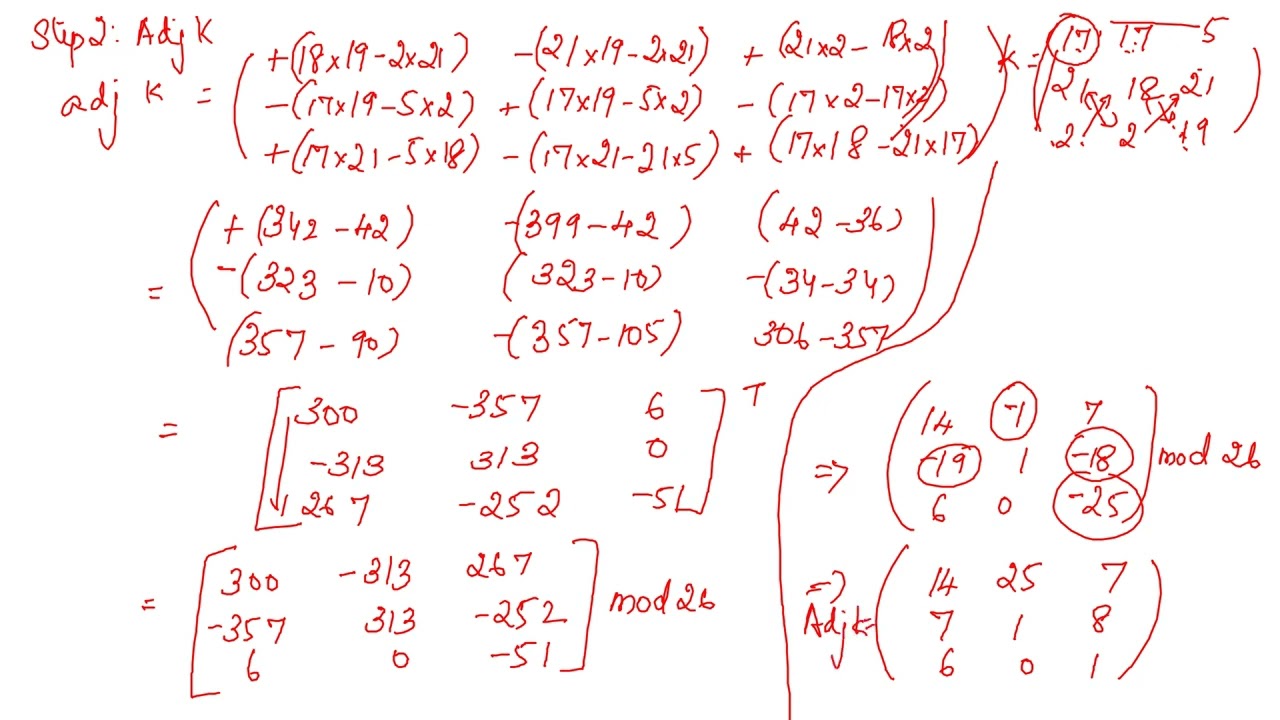 Step 2: Adj K
adj K = ( +(18×19-2×21) -(21×19-2×21) +(21×2-18×2)
-(17×19-5×2) +(17×19-5×2) -(17×2-17×2)
+(17×21-5×18) -(17×21-21×5) +(17×18-21×17) )
K = ( 17 17 5
21 18 21
2 2 19 )
= ( +(342-42) -(399-42) (42-36)
-(323-10) (323-10) -(34-34)
(357-90) -(357-105) 306-357 )
= [ 300 -357 6
-313 313 0
267 -252 -51 ] T
= [ 300 -313 267
-357 313 -252
6 0 -51 ] mod 26
=> ( 14 -1 7
-19 1 -18
6 0 -25 ] mod 26
=> Adj K = ( 14 25 7
7 1 8
6 0 1 )